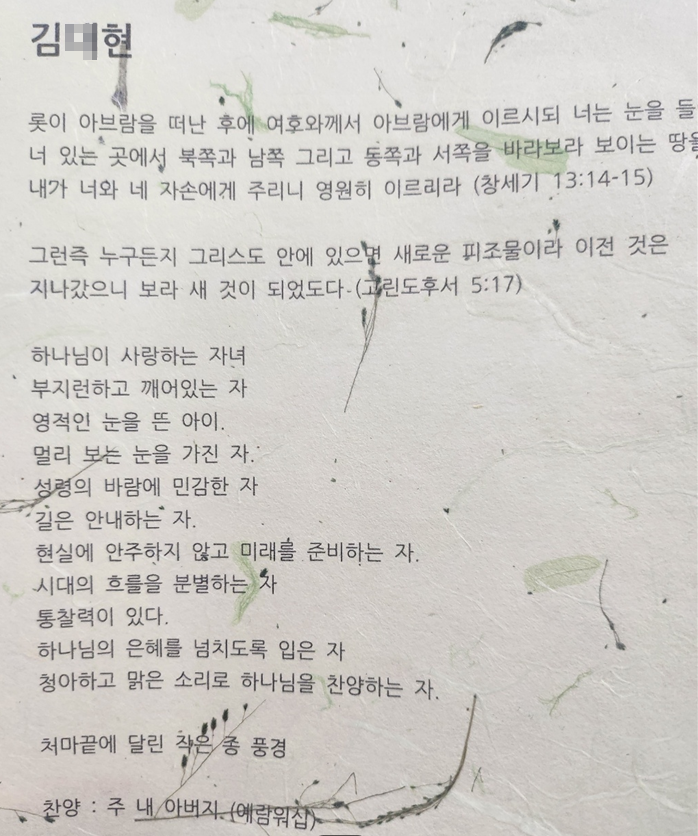 김 현
롯이 아브람을 떠난 후에 여호와께서 아브람에게 이르시되 너는 눈을 들
너 있는 곳에서 북쪽과 남쪽 그리고 동쪽과 서쪽을 바라보라 보이는 땅을
내가 너와 네 자손에게 주리니 영원히 이르리라 (창세기 13:14-15)
그런즉 누구든지 그리스도 안에 있으면 새로운 피조물이라 이전 것은
지나갔으니 보라 새 것이 되었도다 (고린도후서 5:17)
하나님이 사랑하는 자녀
부지런하고 깨어있는 자
영적인 눈을 뜬 아이.
멀리 보는 눈을 가진 자.
성령의 바람에 민감한 자
길은 안내하는 자.
현실에 안주하지 않고 미래를 준비하는 자.
시대의 흐룰을 분별하는 자
통찰력이 있다.
하나님의 은혜를 넘치도록 입은 자
청아하고 맑은 소리로 하나님을 찬양하는 자.
처마끝에 달린 작은 종 풍경
찬양 : 주 내 아버지. (예람워십)